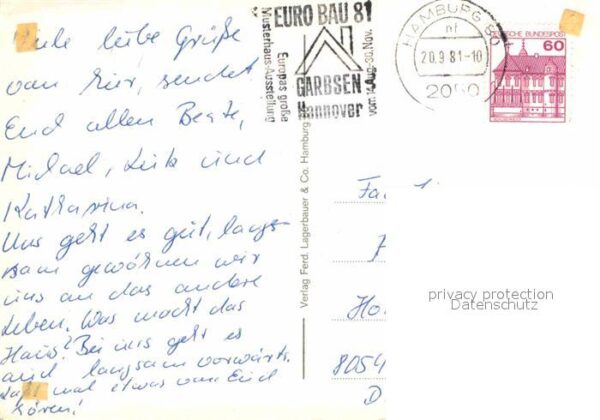 Viele liebe Grüße
von hier, sendet
Euch allen Beate,
Michael, Luk und
Katharina.
Uns geht es gut, lang-
sam gewöhnen wir
uns an das andere
Leben. Was macht das
Haus? Bei uns geht es
auch langsam vorwärts.
Laßt mal etwas von Euch
hören!
EURO BAU 81
Europas große
Musterhaus-Ausstellung
GARBSEN
Hannover
vom 14. Aug.-30. Nov.
HAMBURG 80
nf
20.9.81-10
2050
DEUTSCHE BUNDESPOST
60
Verlag Ferd. Lagerbauer & Co. Hamburg
Fa
Ho
8054
D
privacy protection
Datenschutz